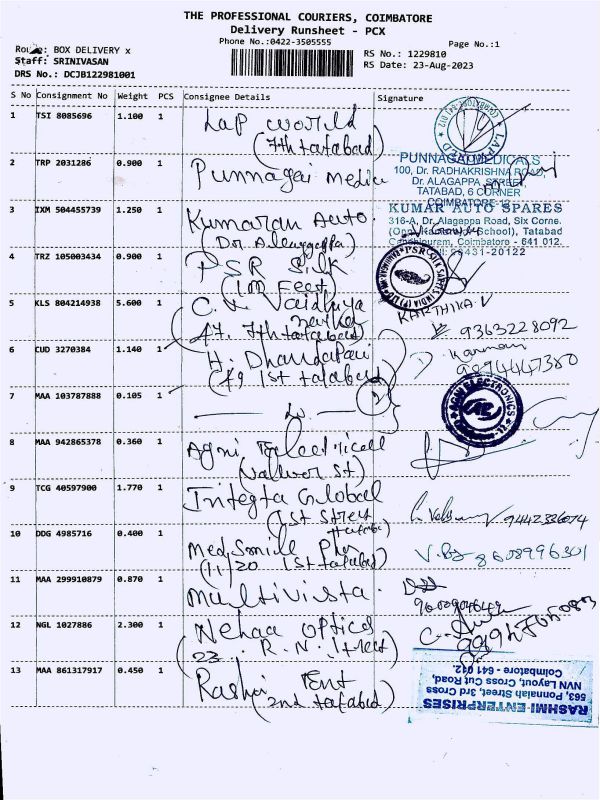 THE PROFESSIONAL COURIERS, COIMBATORE
Delivery Runsheet - PCX
Phone No.:0422-3505555
Page No.:1
Route: BOX DELIVERY x
RS No.: 1229810
Staff: SRINIVASAN
RS Date: 23-Aug-2023
DRS No.: DCJB122981001
S No Consignment No Weight PCS Consignee Details Signature
1 TSI 8085696 1.100 1 Lap world
(7th tatabad)
2 TRP 2031286 0.900 1 Punnagai Medic
PUNNAGAI MEDICALS
100, Dr. RADHAKRISHNA ROAD
Dr. ALAGAPPA STREET,
TATABAD, 6 CORNER
COIMBATORE-12
3 IXM 504455739 1.250 1 Kumaran Auto.
(Dr Alaggappa)
KUMAR AUTO SPARES
316-A, Dr. Alagappa Road, Six Corne.
School), Tatabad
Gandhipuram, Coimbatore - 641 012.
98431-20122
4 TRZ 105003434 0.900 1 PSR Silk
(100 Feet)
5 KLS 804214938 5.600 1 C.K Vaidhiya
(47. 7th tatabad)
KARTHIKA.V
9363228092
6 CUD 3270384 1.140 1 H. Dhandapani
(49 1st tatabad)
Kannan
9894447380
7 MAA 103787888 0.105 1
AGNI ELECTRONICS
8 MAA 942865378 0.360 1 Agni Electricall
9 TCG 40597900 1.770 1 Integta Global
(1st street
10 DDG 4985716 0.400 1 MedSmile
(11/20 1st tatabad)
8608996301
11 MAA 299910879 0.870 1 Multivista.
12 NGL 1027886 2.300 1 Nehaa optics
(23. R.N. Street)
13 MAA 861317917 0.450 1 Rashmi Ent
(2nd tatabad)
RASHMI ENTERPRISES
563, Ponnaiah Street, 3rd Cross
NVN Layout, Cross Cut Road,
Coimbatore - 641 012.